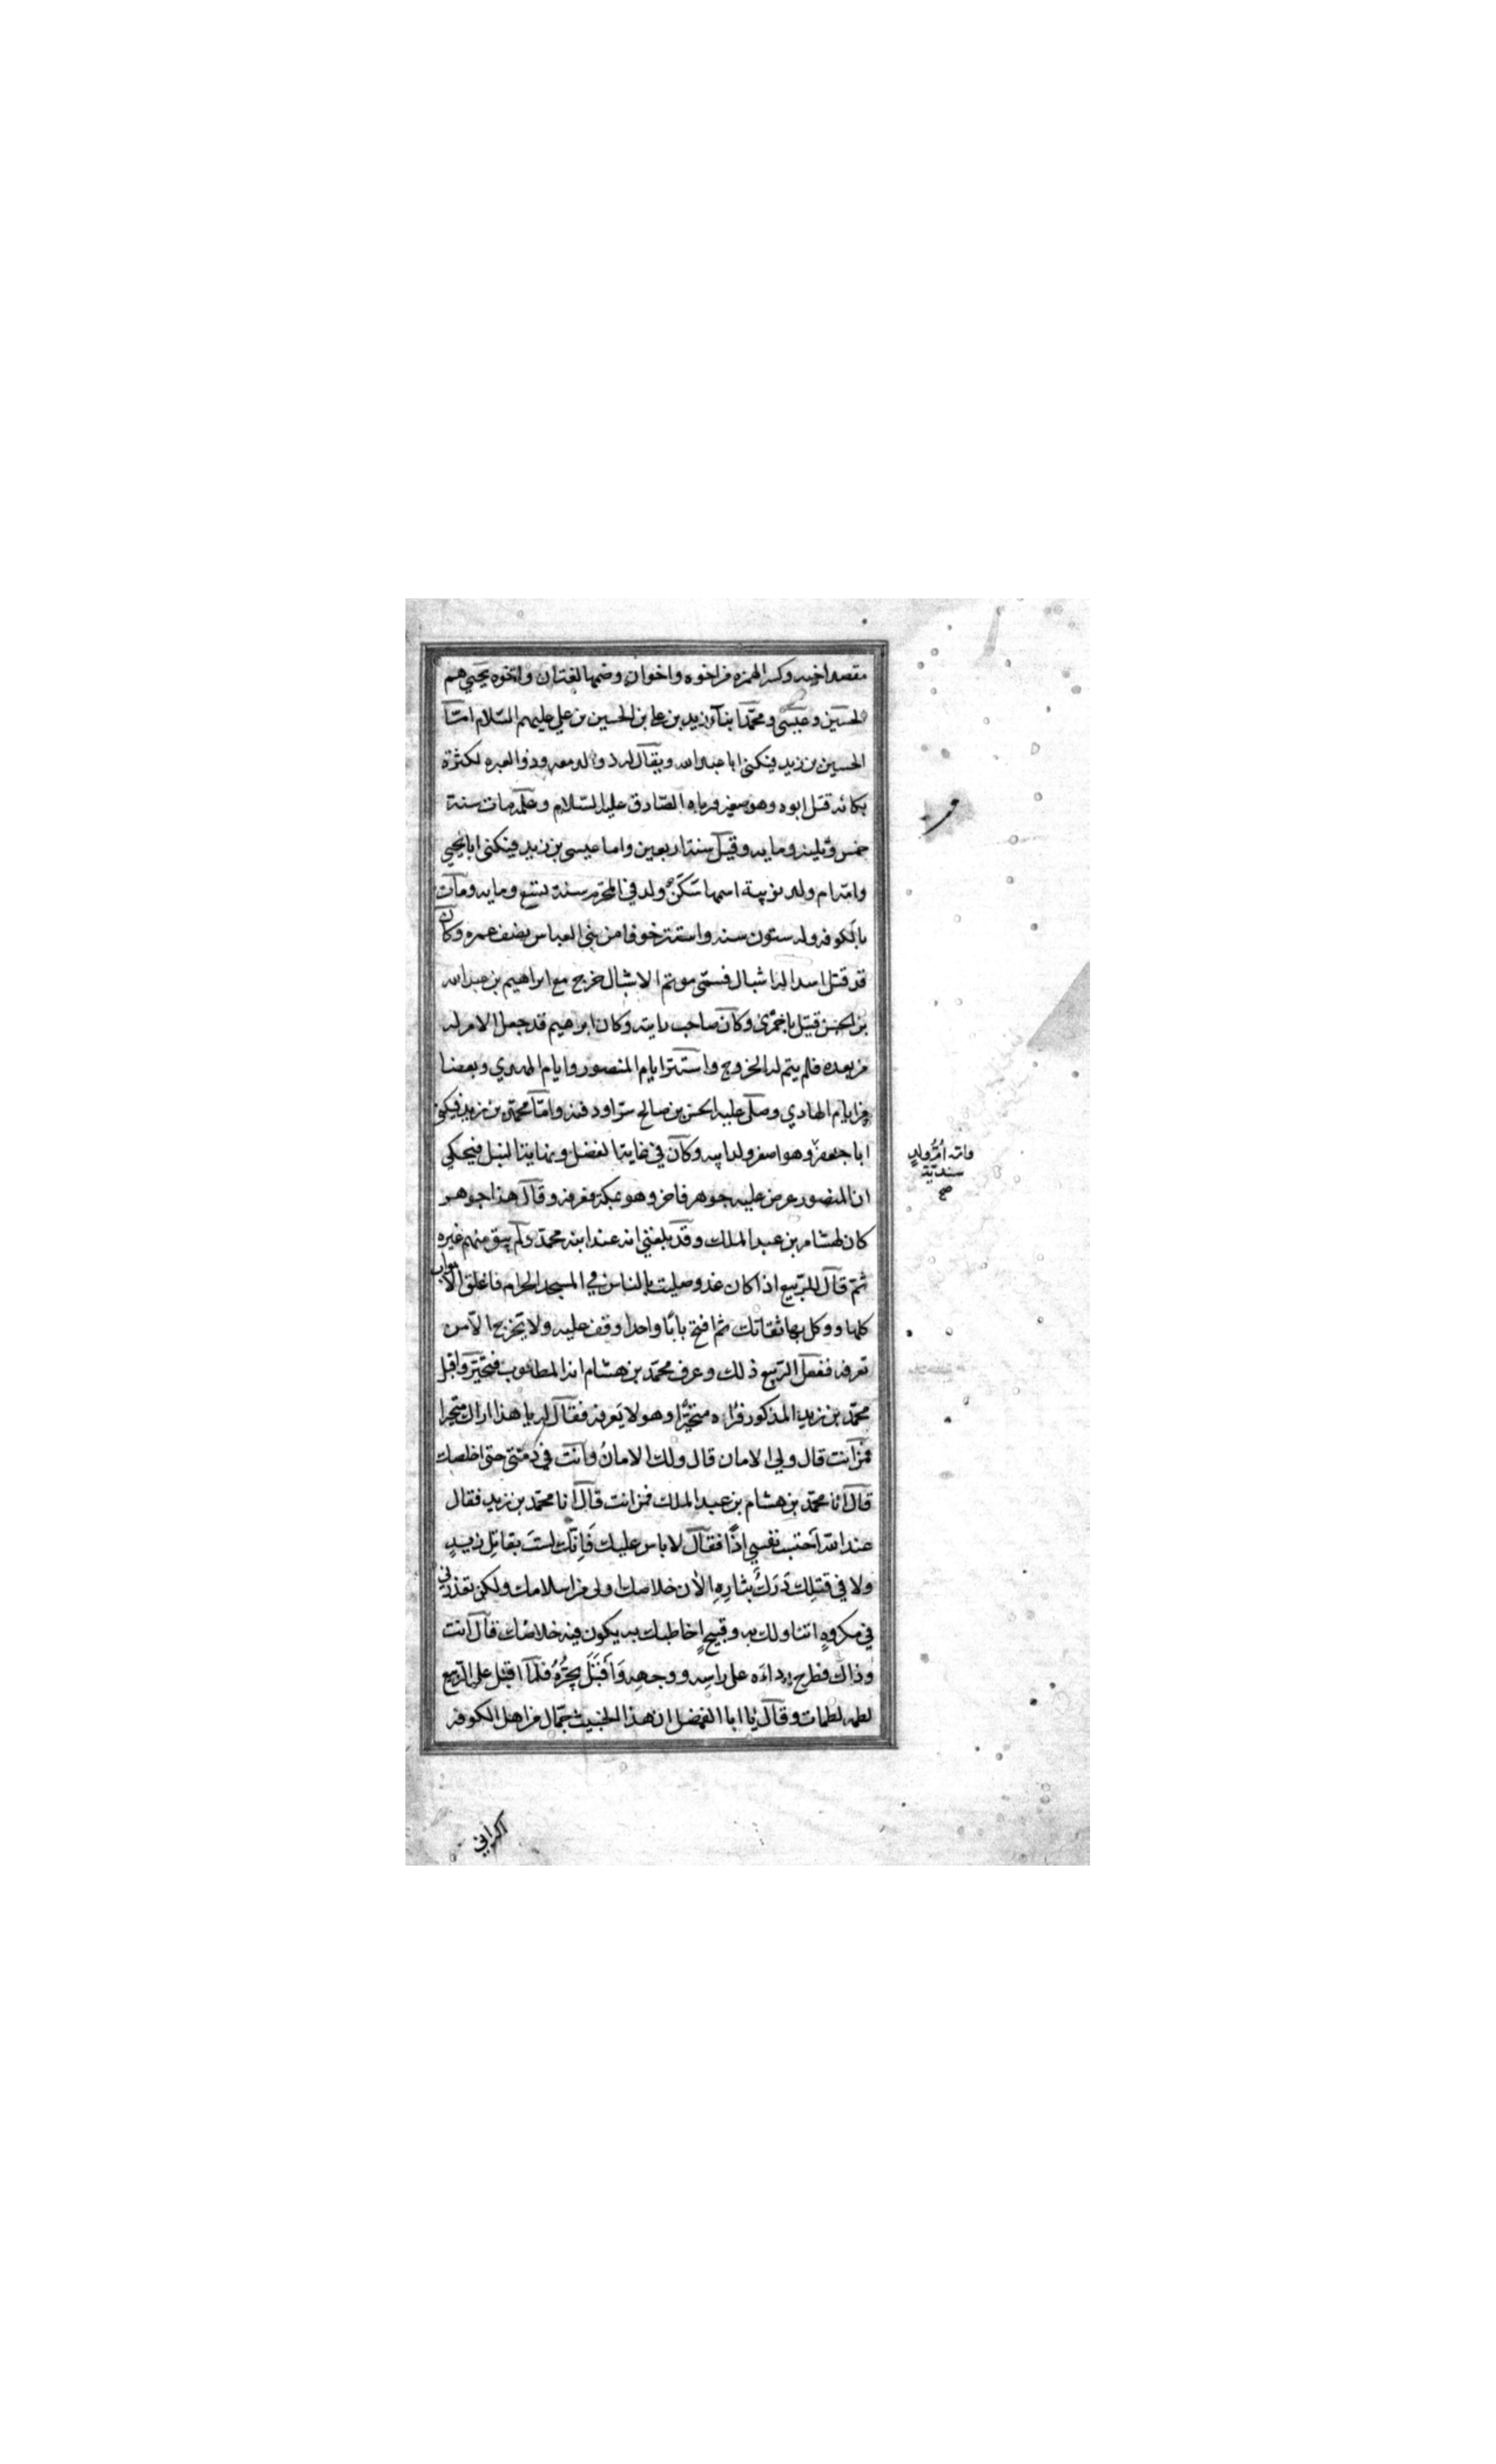 مقصد اخيه وكسر الهمزه من اخوه واخوان وضمها لغتان واخوه يحيى هم
الحسين وعيسى ومحمد ابناء زيد بن علي بن الحسين بن علي عليهم السلام امّا
الحسين بن زيد فيكنى ابا عبد الله ويقال له ذو الدمعه وذو العبره لكثرة
بكائه قتل ابوه وهو صغير فرباه الصّادق عليه السّلام وعلّمه مات سنة
خمس وثلثين ومايه وقيل سنة اربعين واما عيسى بن زيد فيكنى ابا يحيى
وامّه ام ولد نوبية اسمها سَكَن ولد في المحرّم سنة تسع ومايه ومات
بالكوفه وله ستون سنه واستتر خوفا من بني العباس نصف عمره وكان
قد قتل اسدا له اشبال فسمّى موتم الاشبال خرج مع ابراهيم بن عبد الله
بن الحسن قتيل باخمرى وكان صاحب رايته وكان ابرهيم قد جعل الامر له
من بعده فلم يتم له الخروج واستتر ايام المنصور وايام المهدي وبعضا
من ايام الهادي وصلى عليه الحسن بن صالح سرّا ودفنه وامّا محمّد بن زيد فيكنى
ابا جعفر وهو اصغر ولد ابيه وكان في غاية الفضل ونهاية النبل فيحكى
وامّه اُمُّ ولدٍ
سنديّة
صح
ان المنصور عرض عليه جوهر فاخر وهو بمكة فعرفه وقال هذا جوهر
كان لهشام بن عبد الملك وقد بلغني انه عند ابنه محمّد ولم يبق منهم غيره
ثمّ قال للرّبيع اذا كان غد وصليت بالناس في المسجد الحرام فاغلق الابواب
كلها ووكل بها ثقاتك ثم افتح بابًا واحدا وقف عليه ولا تخرج الّا من
تعرفه ففعل الرّبيع ذلك وعرف محمّد بن هشام انه المطلوب فتحيّر واقبل
محمّد بن زيد المذكور فراه متحيّرًا وهو لا يعرفه فقال له يا هذا اراك متحيرا
فمن انت قال ولي الامان قال ولك الامانُ وانت في ذمتي حتى اخلصك
قال انا محمّد بن هشام بن عبد الملك فمن انت قال انا محمّد بن زيد فقال
عند الله احتسب نفسي اذًا فقال لا باس عليك فَاِنّك لستَ بقاتِل زيدٍ
ولا في قتلِك دَرَكٌ بثارِهِ الان خلاصك اولى من اسلامك ولكن تعذرني
في مكروهٍ اتناولك به وقبيحٍ اخاطبك به يكون فيه خلاصك قال انت
وذاك فطرح رداءَه على راسِه ووجهه وَأقبَلَ يَجُرُّهُ فلمّا اقبل على الرّبيع
لطمه لطمات وقال يا ابا الفضل ان هذا الخبيث جمّال من اهل الكوفه
اكراني